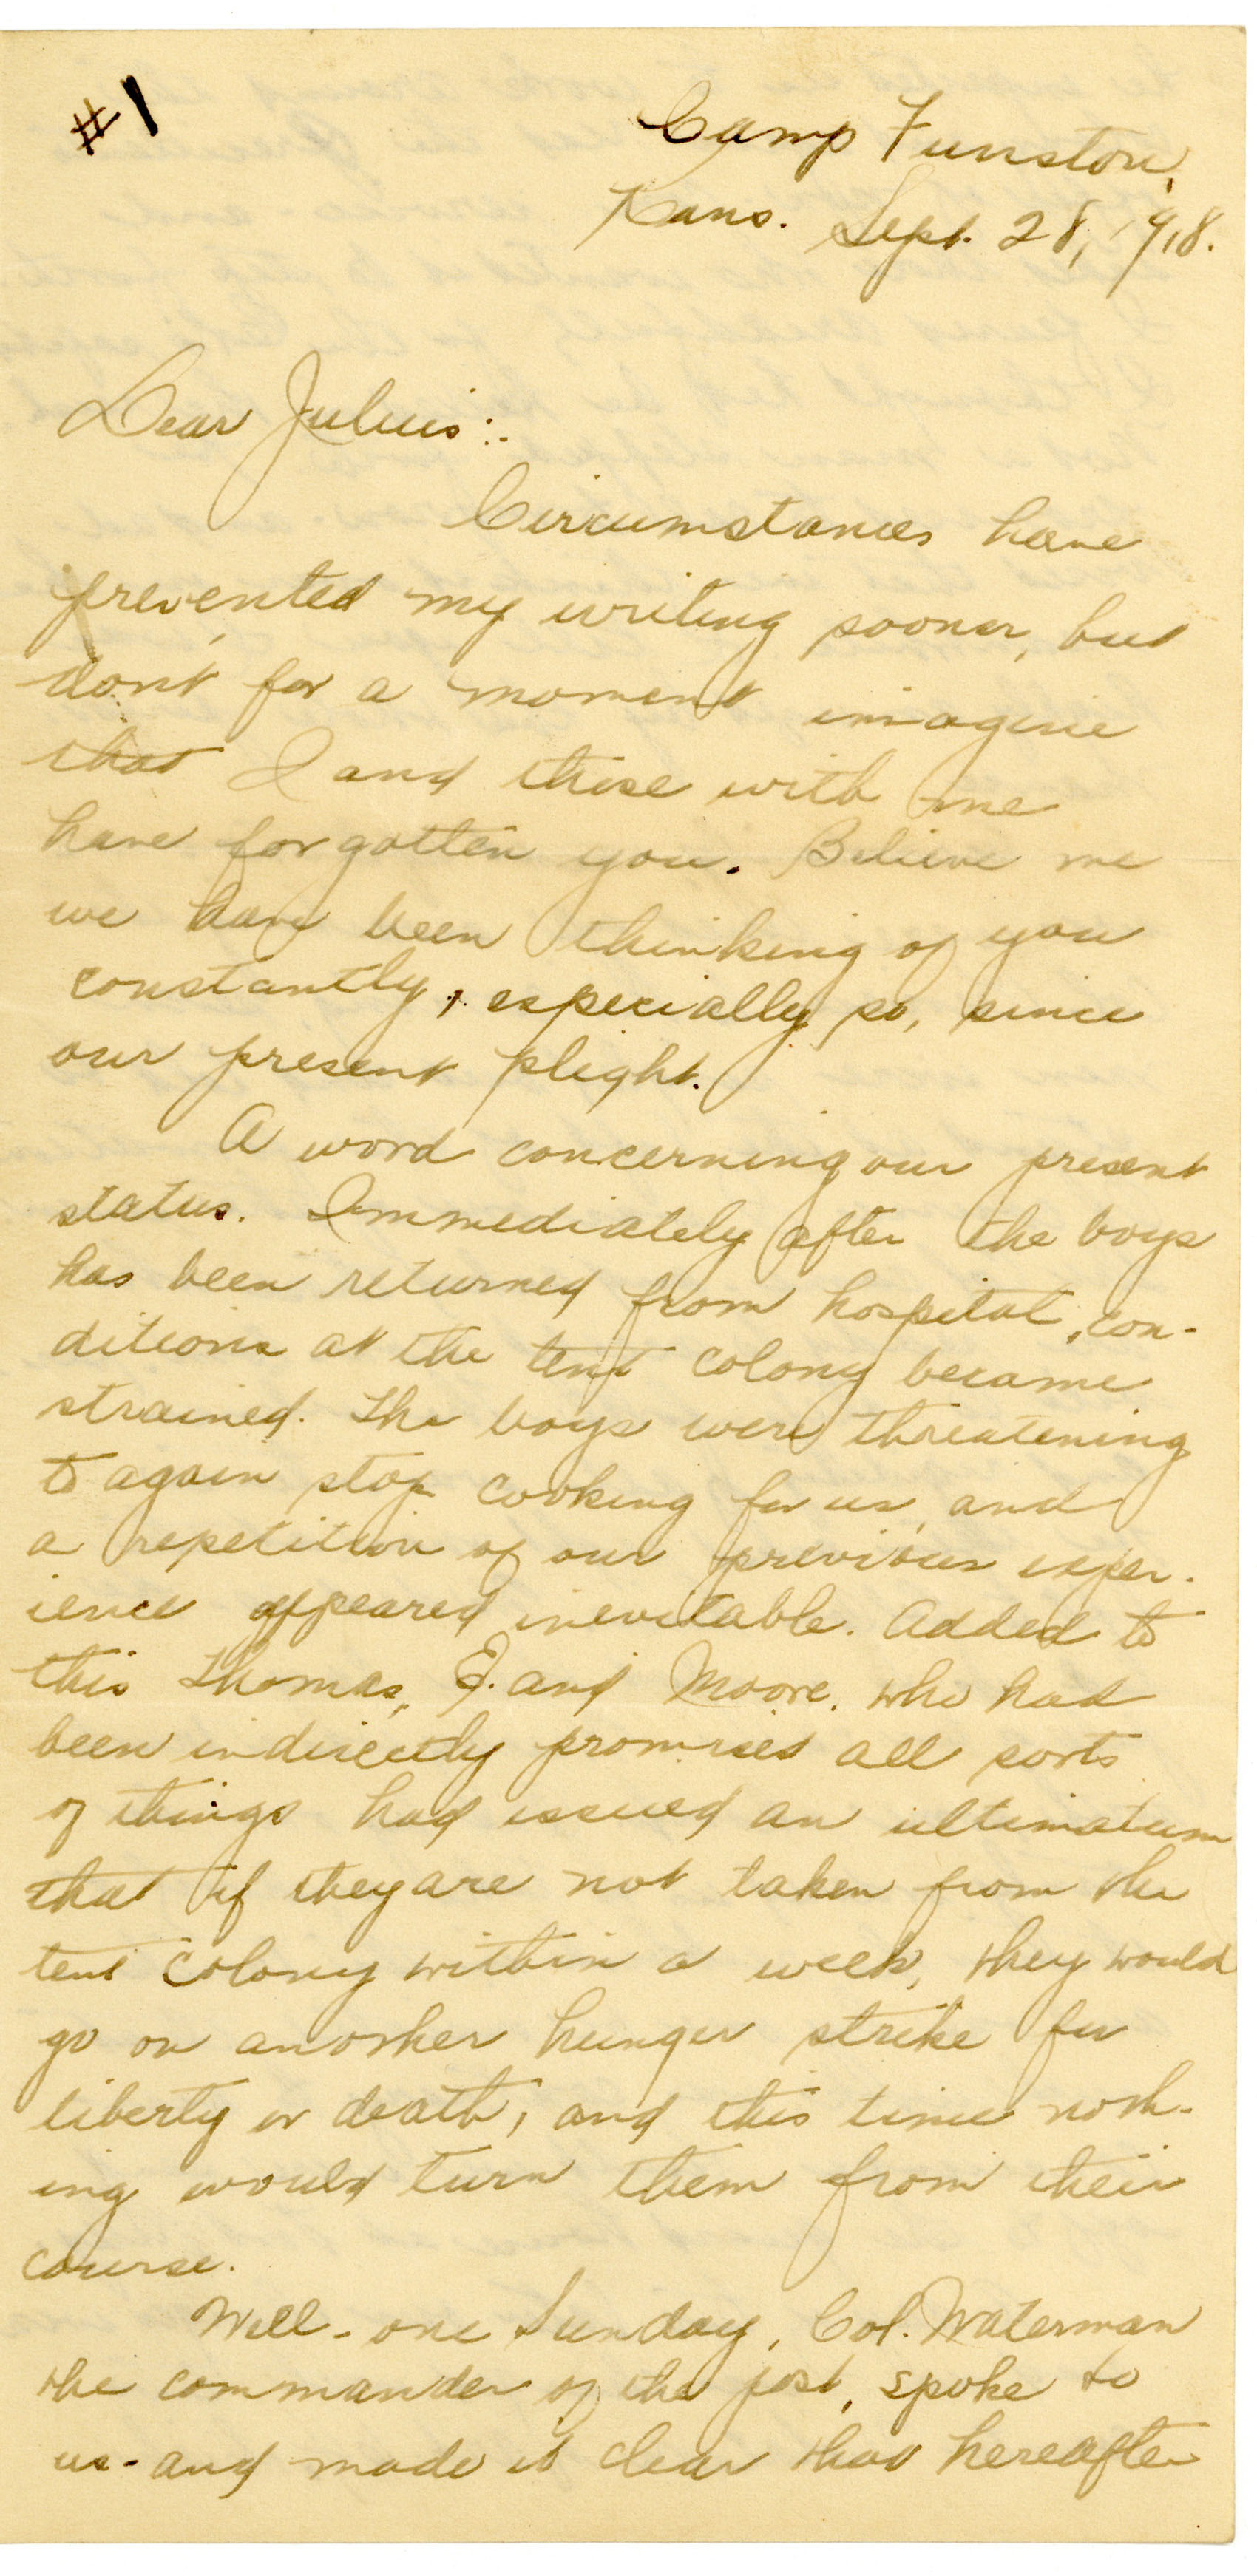 #1
Camp Funston,
Kans. Sept. 28, 1918.
Dear Julius:.
Circumstances have
prevented my writing sooner, but
dont for a moment imagine
that I and those with me
have forgotten you. Believe me
we have been thinking of you
constantly, especially so, since
our present plight.
A word concerning our present
status. Immediately after the boys
has been returned from hospital, con-
ditions at the tent colony became
strained. The boys were threatening
to again stop cooking for us, and
a repetition of our previous exper-
ience appeared inevitable. Added to
this Thomas, E. and Moore. who had
been indirectly promised all sorts
of things had issued an ultimatum
that if they are not taken from the
tent colony within a week, they would
go on another hunger strike for
liberty or death, and this time noth-
ing would turn them from their
course.
Well - one Sunday, Col. Waterman
the commander of the post, spoke to
us - and made it clear that hereafter